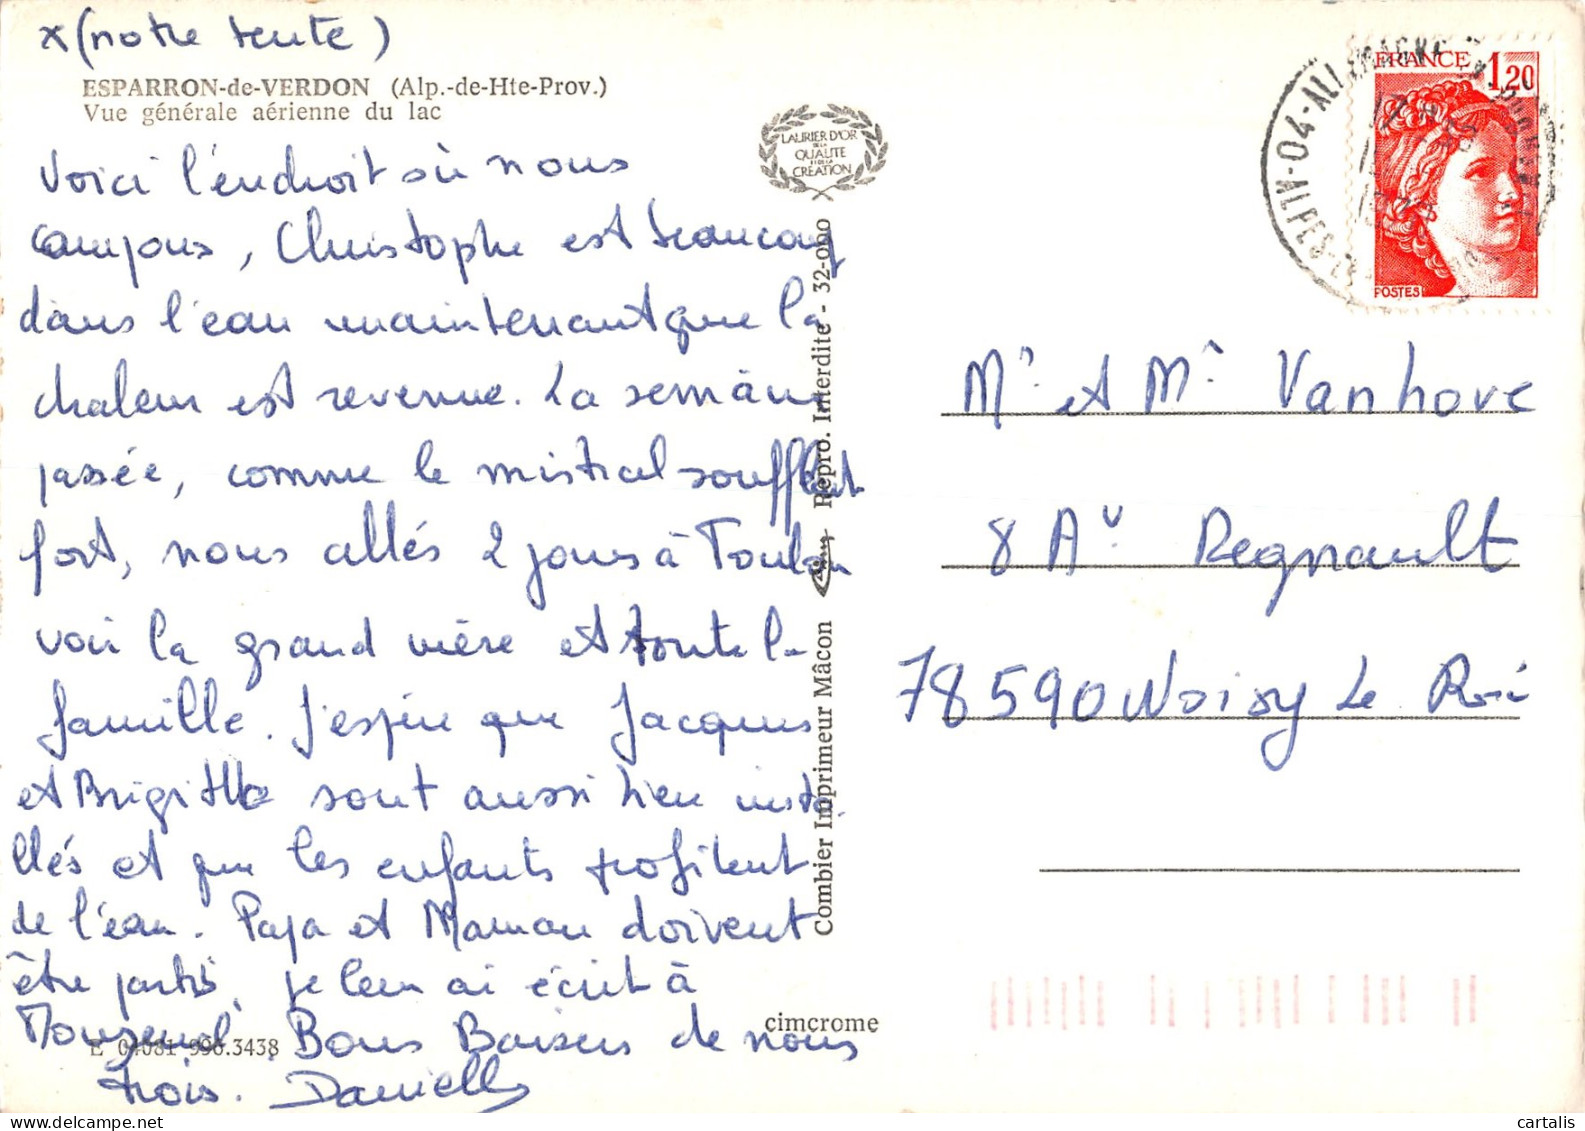 x (notre tente)
ESPARRON-de-VERDON (Alp.-de-Hte-Prov.)
Vue générale aérienne du lac
Voici l'endroit où nous
campons, Christophe est beaucoup
dans l'eau maintenant que la
chaleur est revenue. La semaine
passée, comme le mistral soufflait
fort, nous allés 2 jours à Toulon
voir la grand mère et toute la
famille. J'espère que Jacques
et Brigitte sont aussi bien insta
llés et que les enfants profitent
de l'eau. Papa et Maman doivent
être partis, je leur ai écrit à
Bons Baisers de nous
trois. Danielle
E 04081 990.3438
cimcrome
LAURIER D'OR
DE LA
QUALITE
ET DE LA
CRÉATION
Combier Imprimeur Mâcon
Repro. Interdite - 32-000
FRANCE 1,20
POSTES
04-ALLEMAGNE EN PROVENCE
ALPES-
Mr et Me Vanhove
8 Av Regnault
78590 Noisy Le Roi
cartalis